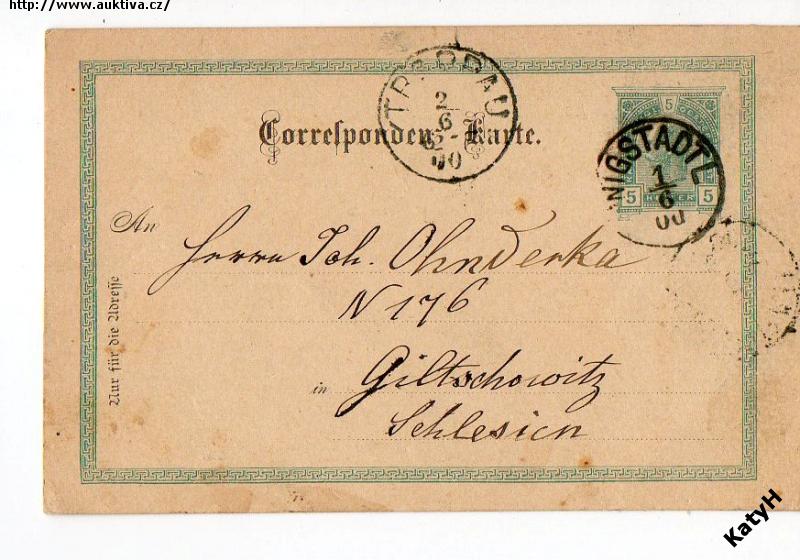 http://www.auktiva.cz/
TROPPAU
2/6
00
Correspondenz-Karte.
5
5 HELLER 5
NIGSTADTL
1/6
00
An
Herrn Joh. Ohnderka
N 176
in Giltschowitz
Schlesien
Nur für die Adresse
KatyH